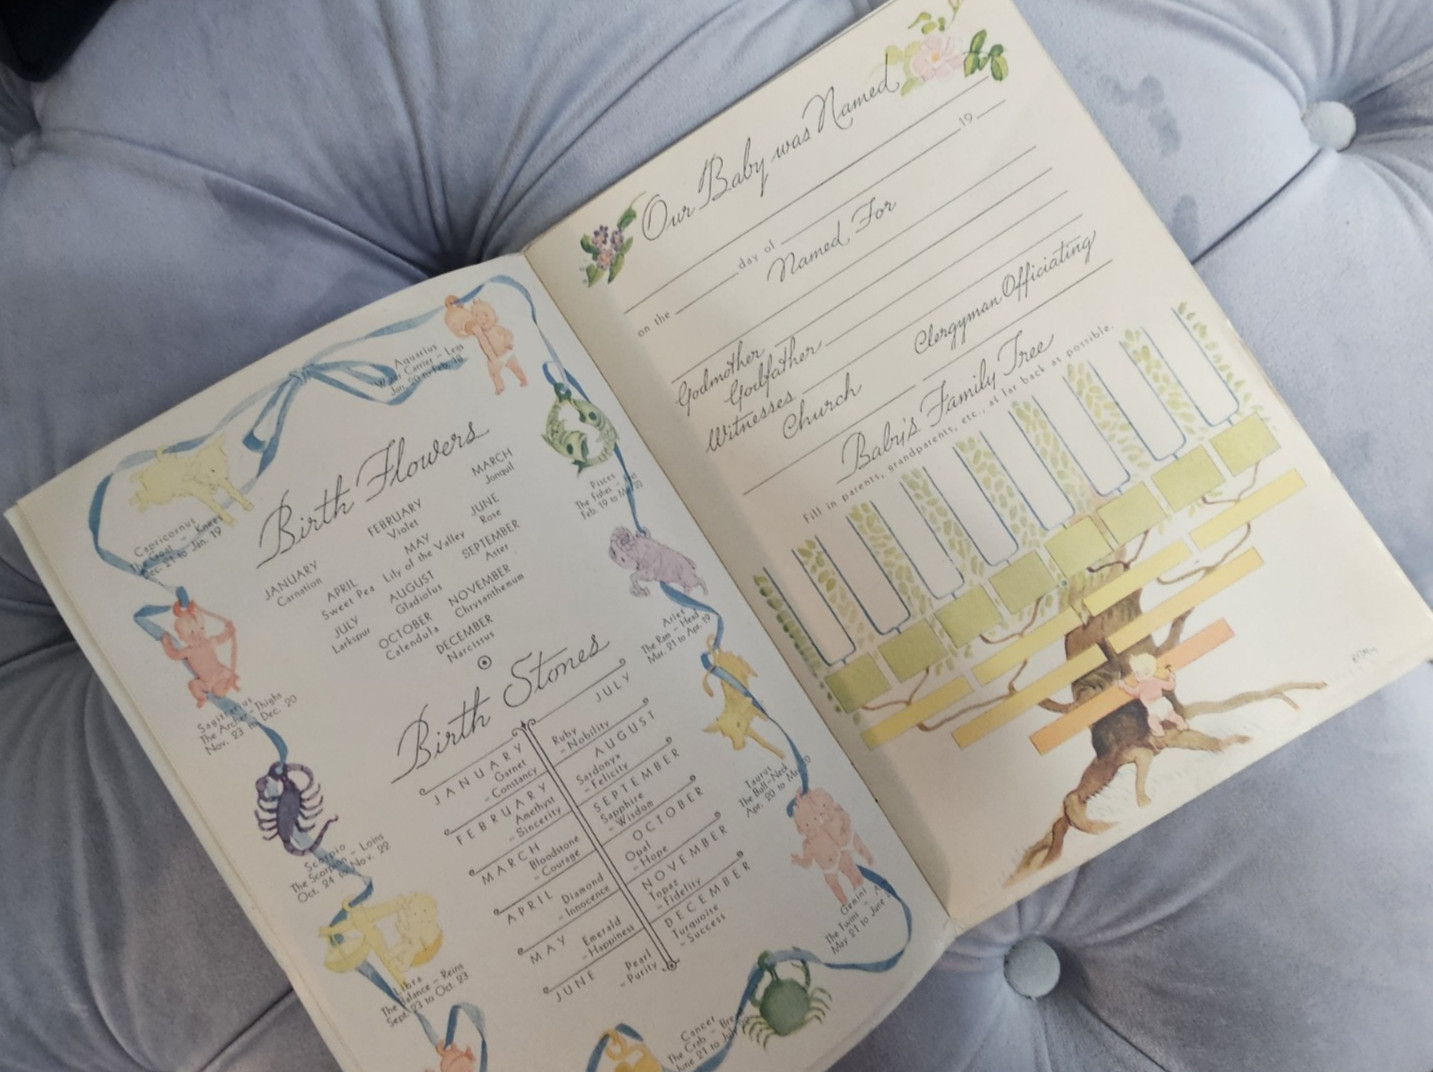 Birth Flowers
JANUARY
Carnation
FEBRUARY
Violet
MARCH
Jonquil
APRIL
Sweet Pea
MAY
Lily of the Valley
JUNE
Rose
JULY
Larkspur
AUGUST
Gladiolus
SEPTEMBER
Aster
OCTOBER
Calendula
NOVEMBER
Chrysanthemum
DECEMBER
Narcissus
Birth Stones
JANUARY
Garnet
-Constancy
FEBRUARY
Amethyst
-Sincerity
MARCH
Bloodstone
-Courage
APRIL
Diamond
-Innocence
MAY
Emerald
-Happiness
JUNE
Pearl
-Purity
JULY
Ruby
-Nobility
AUGUST
Sardonyx
-Felicity
SEPTEMBER
Sapphire
-Wisdom
OCTOBER
Opal
-Hope
NOVEMBER
Topaz
-Fidelity
DECEMBER
Turquoise
-Success
Aquarius
Water Carrier - Legs
Jan. 20 to Feb. 18
Pisces
The Fishes -
Feb. 19 to Mar. 20
Aries
The Ram - Head
Mar. 21 to Apr. 19
Taurus
The Bull - Neck
Apr. 20 to May 20
Gemini
The Twins
May 21 to June
Cancer
The Crab -
June 21 to July
Libra
The Balance - Reins
Sept. 23 to Oct. 23
Scorpio
The Scorpion - Loins
Oct. 24 to Nov. 22
Sagittarius
The Archer - Thighs
Nov. 23 to Dec. 20
Capricornus
The Goat - Knees
Dec. 21 to Jan. 19
Our Baby was Named
on the day of 19
Named For
Godmother
Godfather
Witnesses
Church Clergyman Officiating
Baby's Family Tree
Fill in parents, grandparents, etc., as far back as possible.